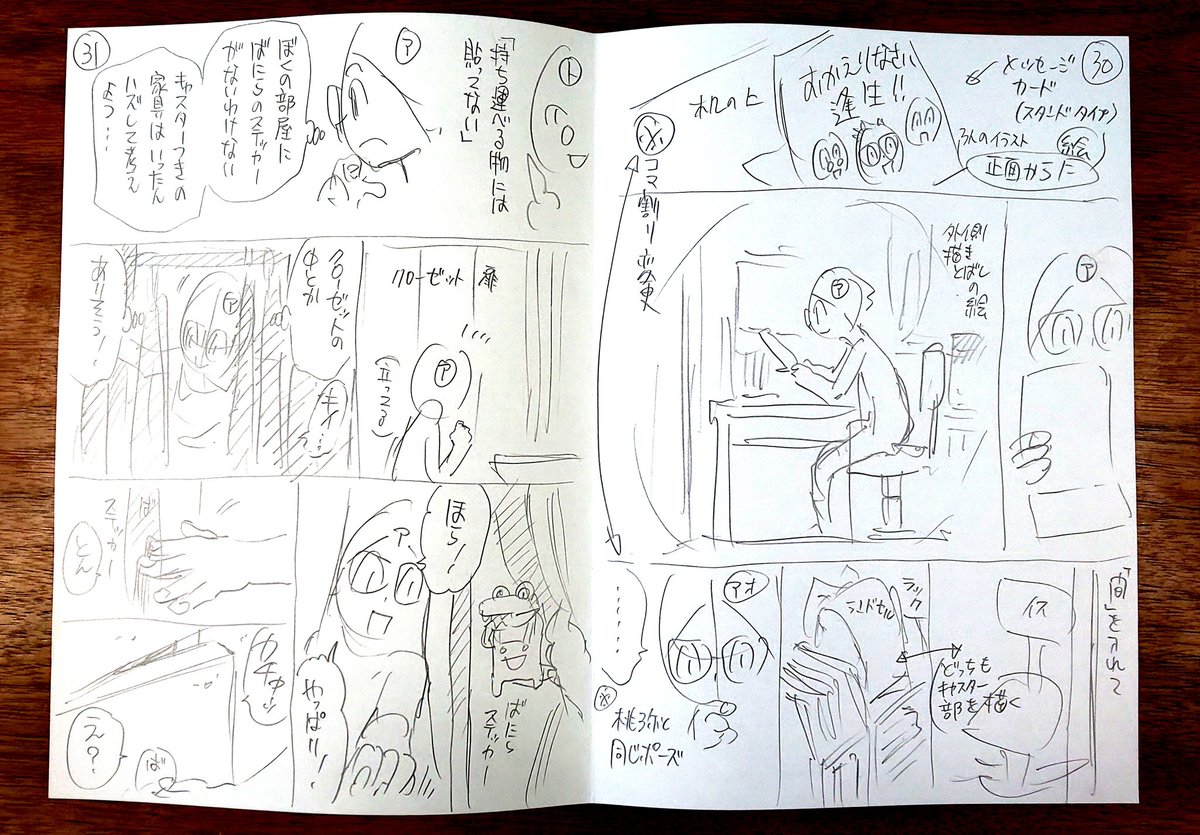 30
メッセージ
カード
(スタンドタイプ)
3人のイラスト
絵
正面からに
おかえりなさい
逢生!!
机の上
※コマ割り変更
ア
外側
描き
とばし
の絵
ア
「間」を入れて
イス
どっちも
キャスター
部を描く
ラック
ランドセル
アオ
……
※
桃弥と
同じポーズ
31
ト
「持ち運べる物には
貼ってない」
ア
ぼくの部屋に
ばにらのステッカー
がないわけない
キャスターつきの
家具はいったん
ハズして考え
よう…
クローゼット
扉
ア
(立ってる)
クローゼットの
中とか
ア
キィ…
ありそう!
ばにら
ステッカー
ほら!
ア
やっぱり!
ば
ステッカー
とん
カチャ…
え?
ば